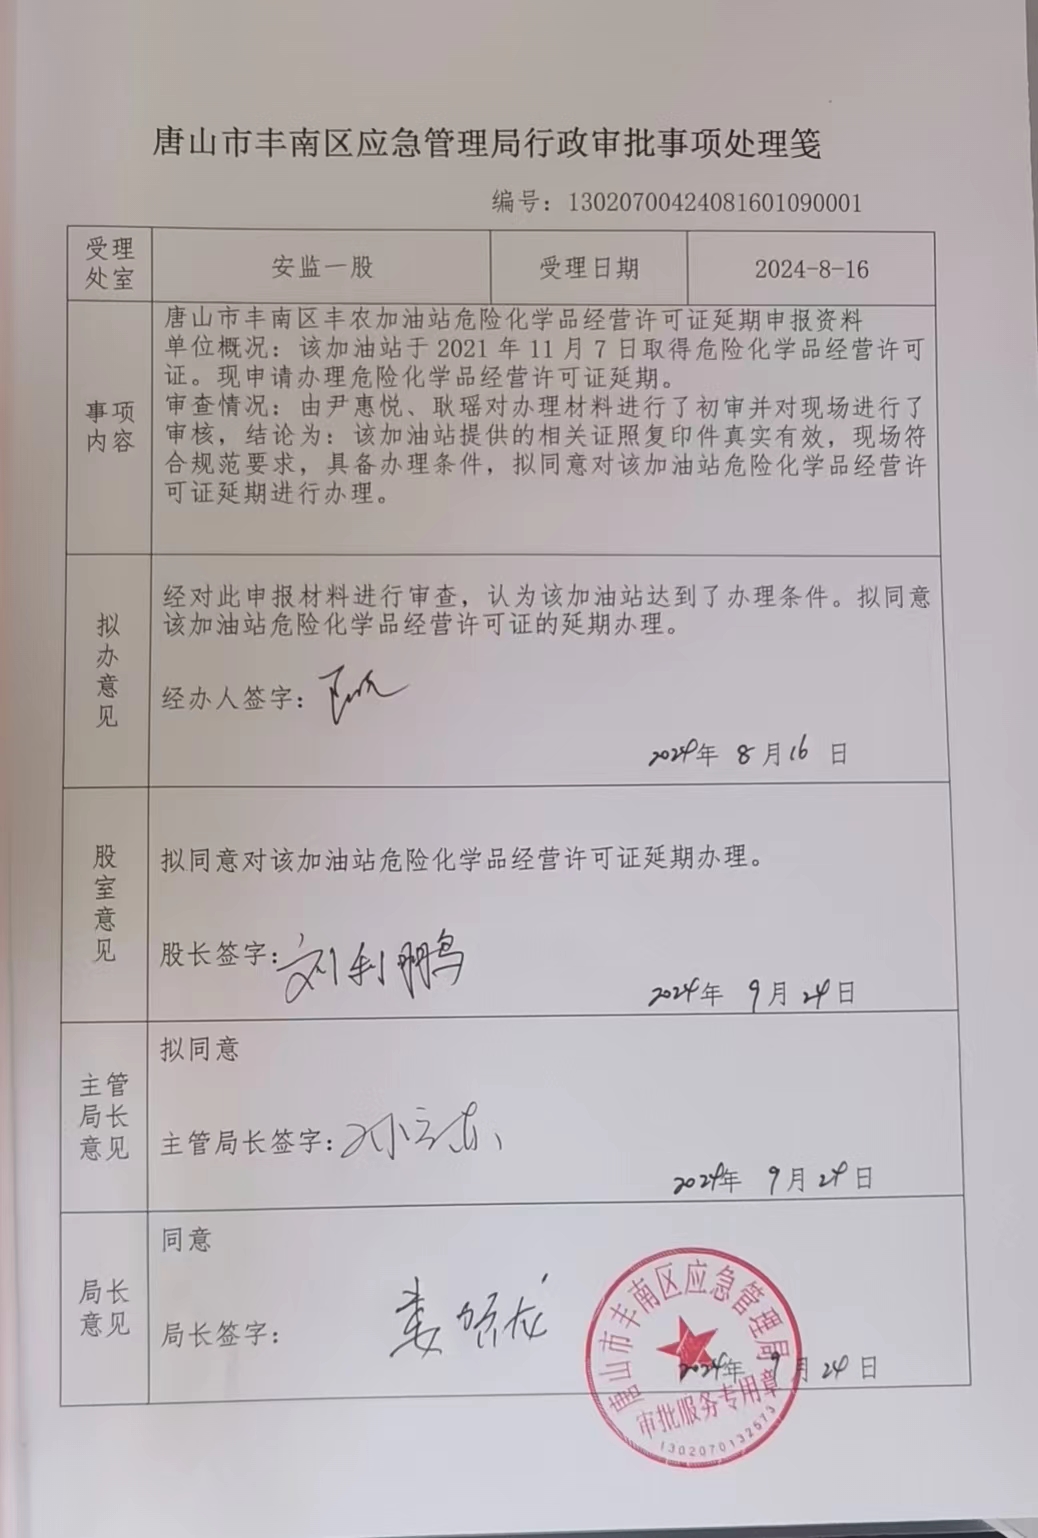 唐山市丰南区应急管理局行政审批事项处理笺
编号：13020700424081601090001
受理
处室
安监一股
受理日期
2024-8-16
事项
内容
唐山市丰南区丰农加油站危险化学品经营许可证延期申报资料
单位概况：该加油站于 2021 年 11 月 7 日取得危险化学品经营许可
证。现申请办理危险化学品经营许可证延期。
审查情况：由尹惠悦、耿瑶对办理材料进行了初审并对现场进行了
审核，结论为：该加油站提供的相关证照复印件真实有效，现场符
合规范要求，具备办理条件，拟同意对该加油站危险化学品经营许
可证延期进行办理。
拟
办
意
见
经对此申报材料进行审查，认为该加油站达到了办理条件。拟同意
该加油站危险化学品经营许可证的延期办理。
经办人签字：
2024年 8月16 日
股
室
意
见
拟同意对该加油站危险化学品经营许可证延期办理。
股长签字：刘利鹏
2024年 9月24日
主管
局长
意见
拟同意
主管局长签字：
2024年 9月24日
局长
意见
同意
局长签字：
2024年 9月24日
唐山市丰南区应急管理局
审批服务专用章
1302070132573